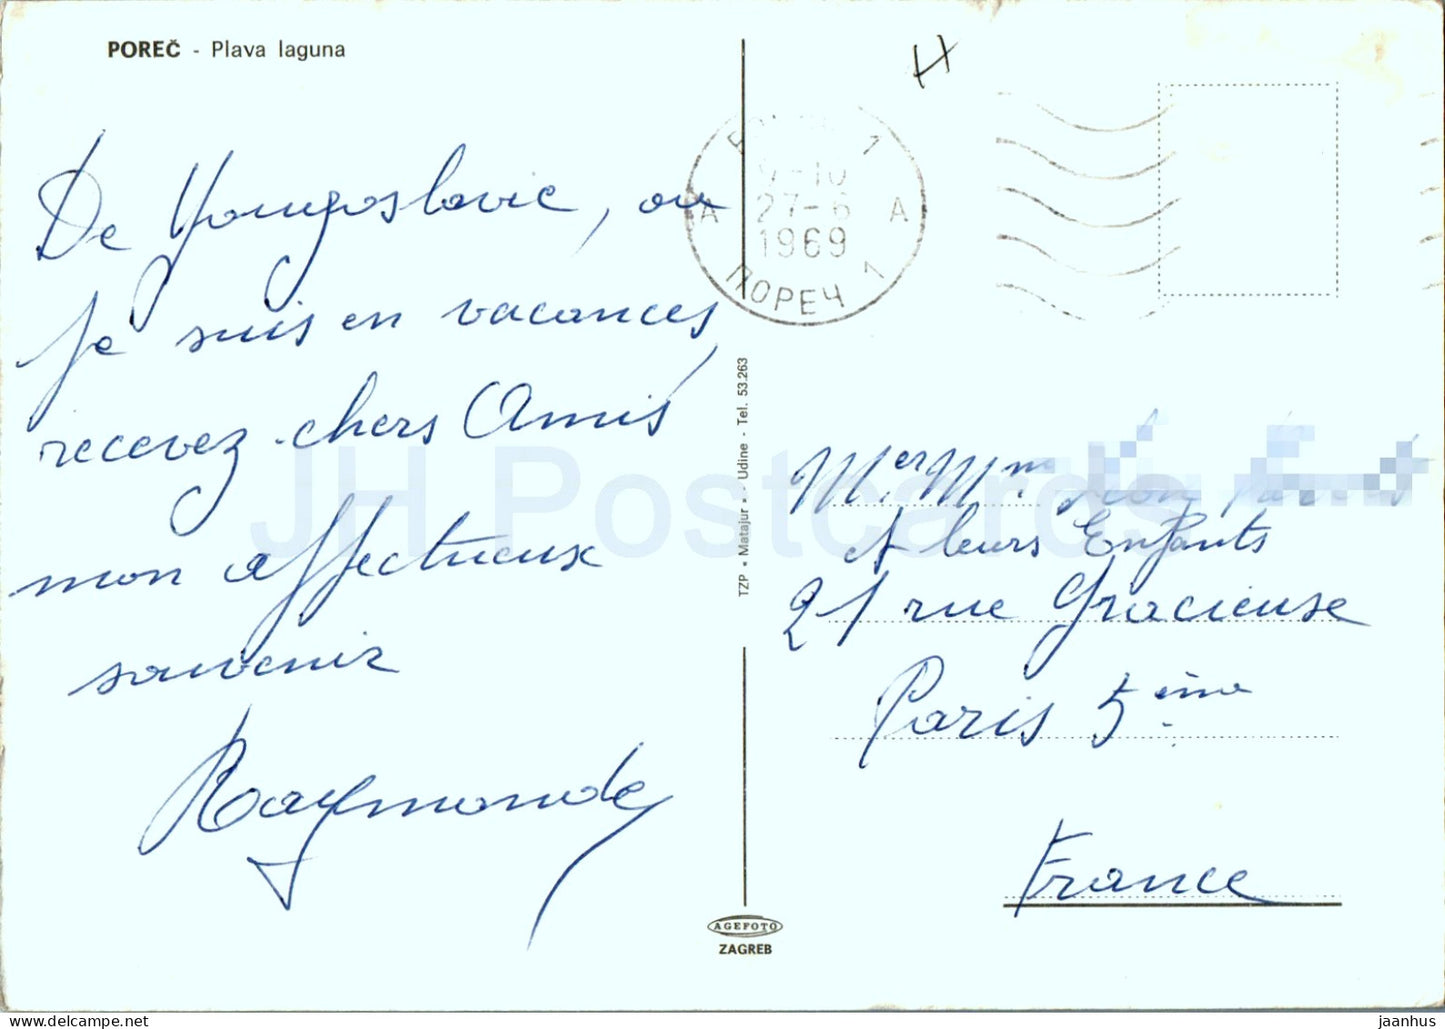 POREČ - Plava laguna
De Yougoslavie, ou
je suis en vacances,
recevez chers Amis
mon affectueux
souvenir
Raymonde
H
1
9-10
A 27-6 A
1969
ПОРЕЧ 1
TZP • Matajur • - Udine - Tel. 53.263
Mer Mme
et leurs Enfants
21 rue Gracieuse
Paris 5ème
France
AGEFOTO
ZAGREB
JH Postcards
jaanhus